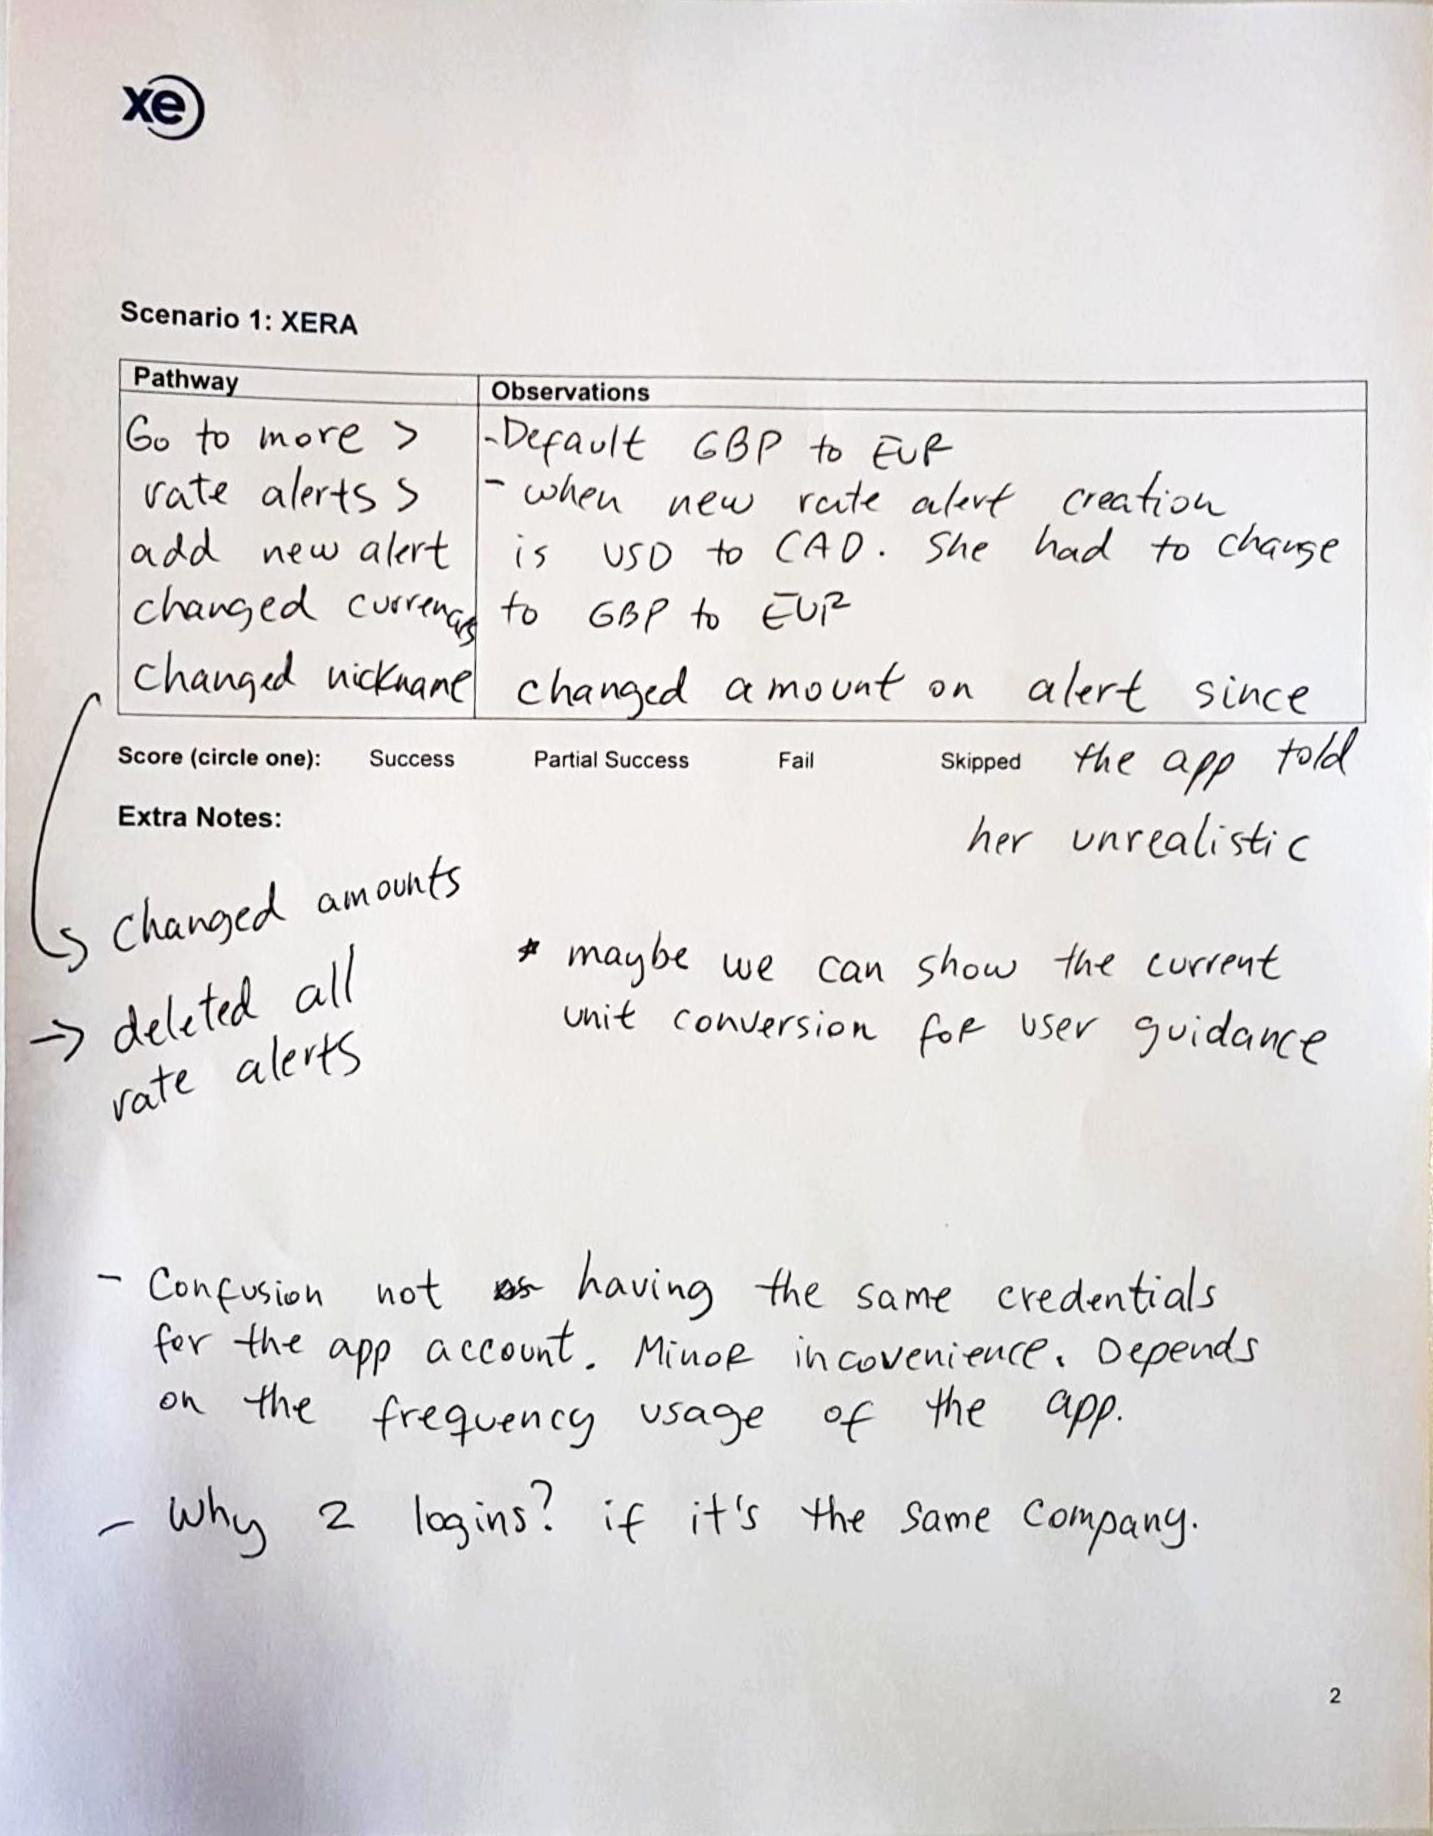 xe
Scenario 1: XERA
Pathway
Go to more >
rate alerts >
add new alert
changed currencies
changed nickname
Observations
- Default GBP to EUR
- when new rate alert creation
is USD to CAD. She had to change
to GBP to EUR
changed amount on alert since
the app told
her unrealistic
Score (circle one): Success Partial Success Fail Skipped
Extra Notes:
→ changed amounts
→ deleted all
rate alerts
* maybe we can show the current
unit conversion for user guidance
- Confusion not having the same credentials
for the app account. Minor incovenience. Depends
on the frequency usage of the app.
- Why 2 logins? if it's the same company.
2